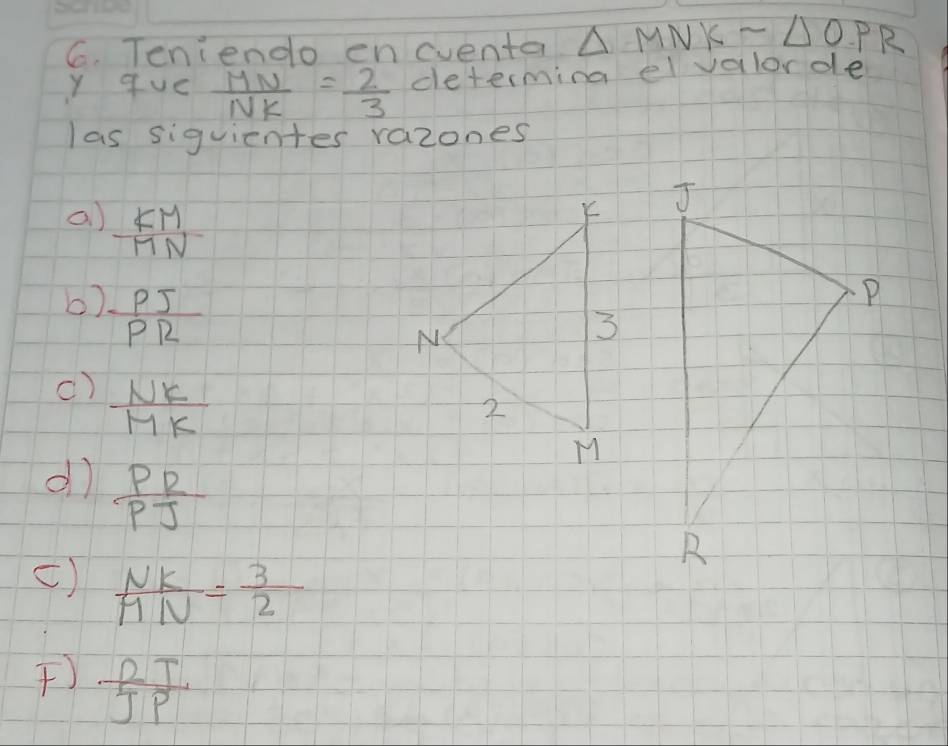 6. Teniendo en cuenta Δ MNK ~ ΔO.PR
y que MN/NK = 2/3 determina el valor de
las siguientes razones
a) KM/MN
b) PJ/PR
c) NK/MK
d) PR/PJ
e) NK/MN = 3/2
F) RJ/JP
K
N
M
2
3
J
P
R